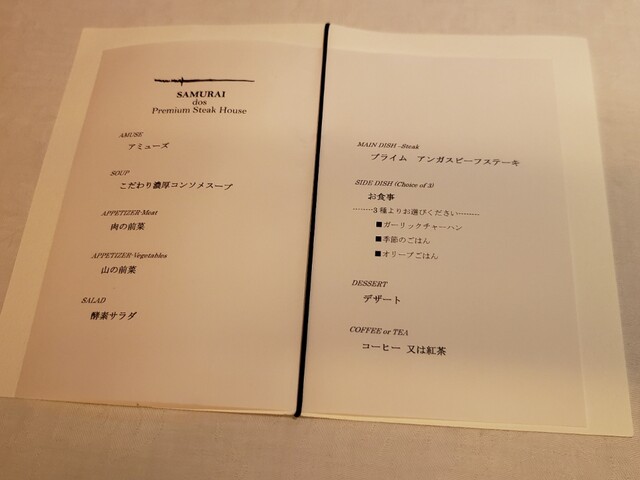 SAMURAI
dos
Premium Steak House
AMUSE
アミューズ
SOUP
こだわり濃厚コンソメスープ
APPETIZER-Meat
肉の前菜
APPETIZER-Vegetables
山の前菜
SALAD
酵素サラダ
MAIN DISH -Steak
プライム アンガスビーフステーキ
SIDE DISH (Choice of 3)
お食事
--------3種よりお選びください---------
■ガーリックチャーハン
■季節のごはん
■オリーブごはん
DESSERT
デザート
COFFEE or TEA
コーヒー 又は紅茶